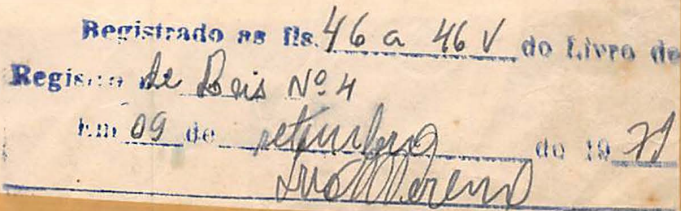 Registrado as fls. 46 a 46 V do Livro de
Registro de Leis Nº 4
Em 09 de setembro de 1971